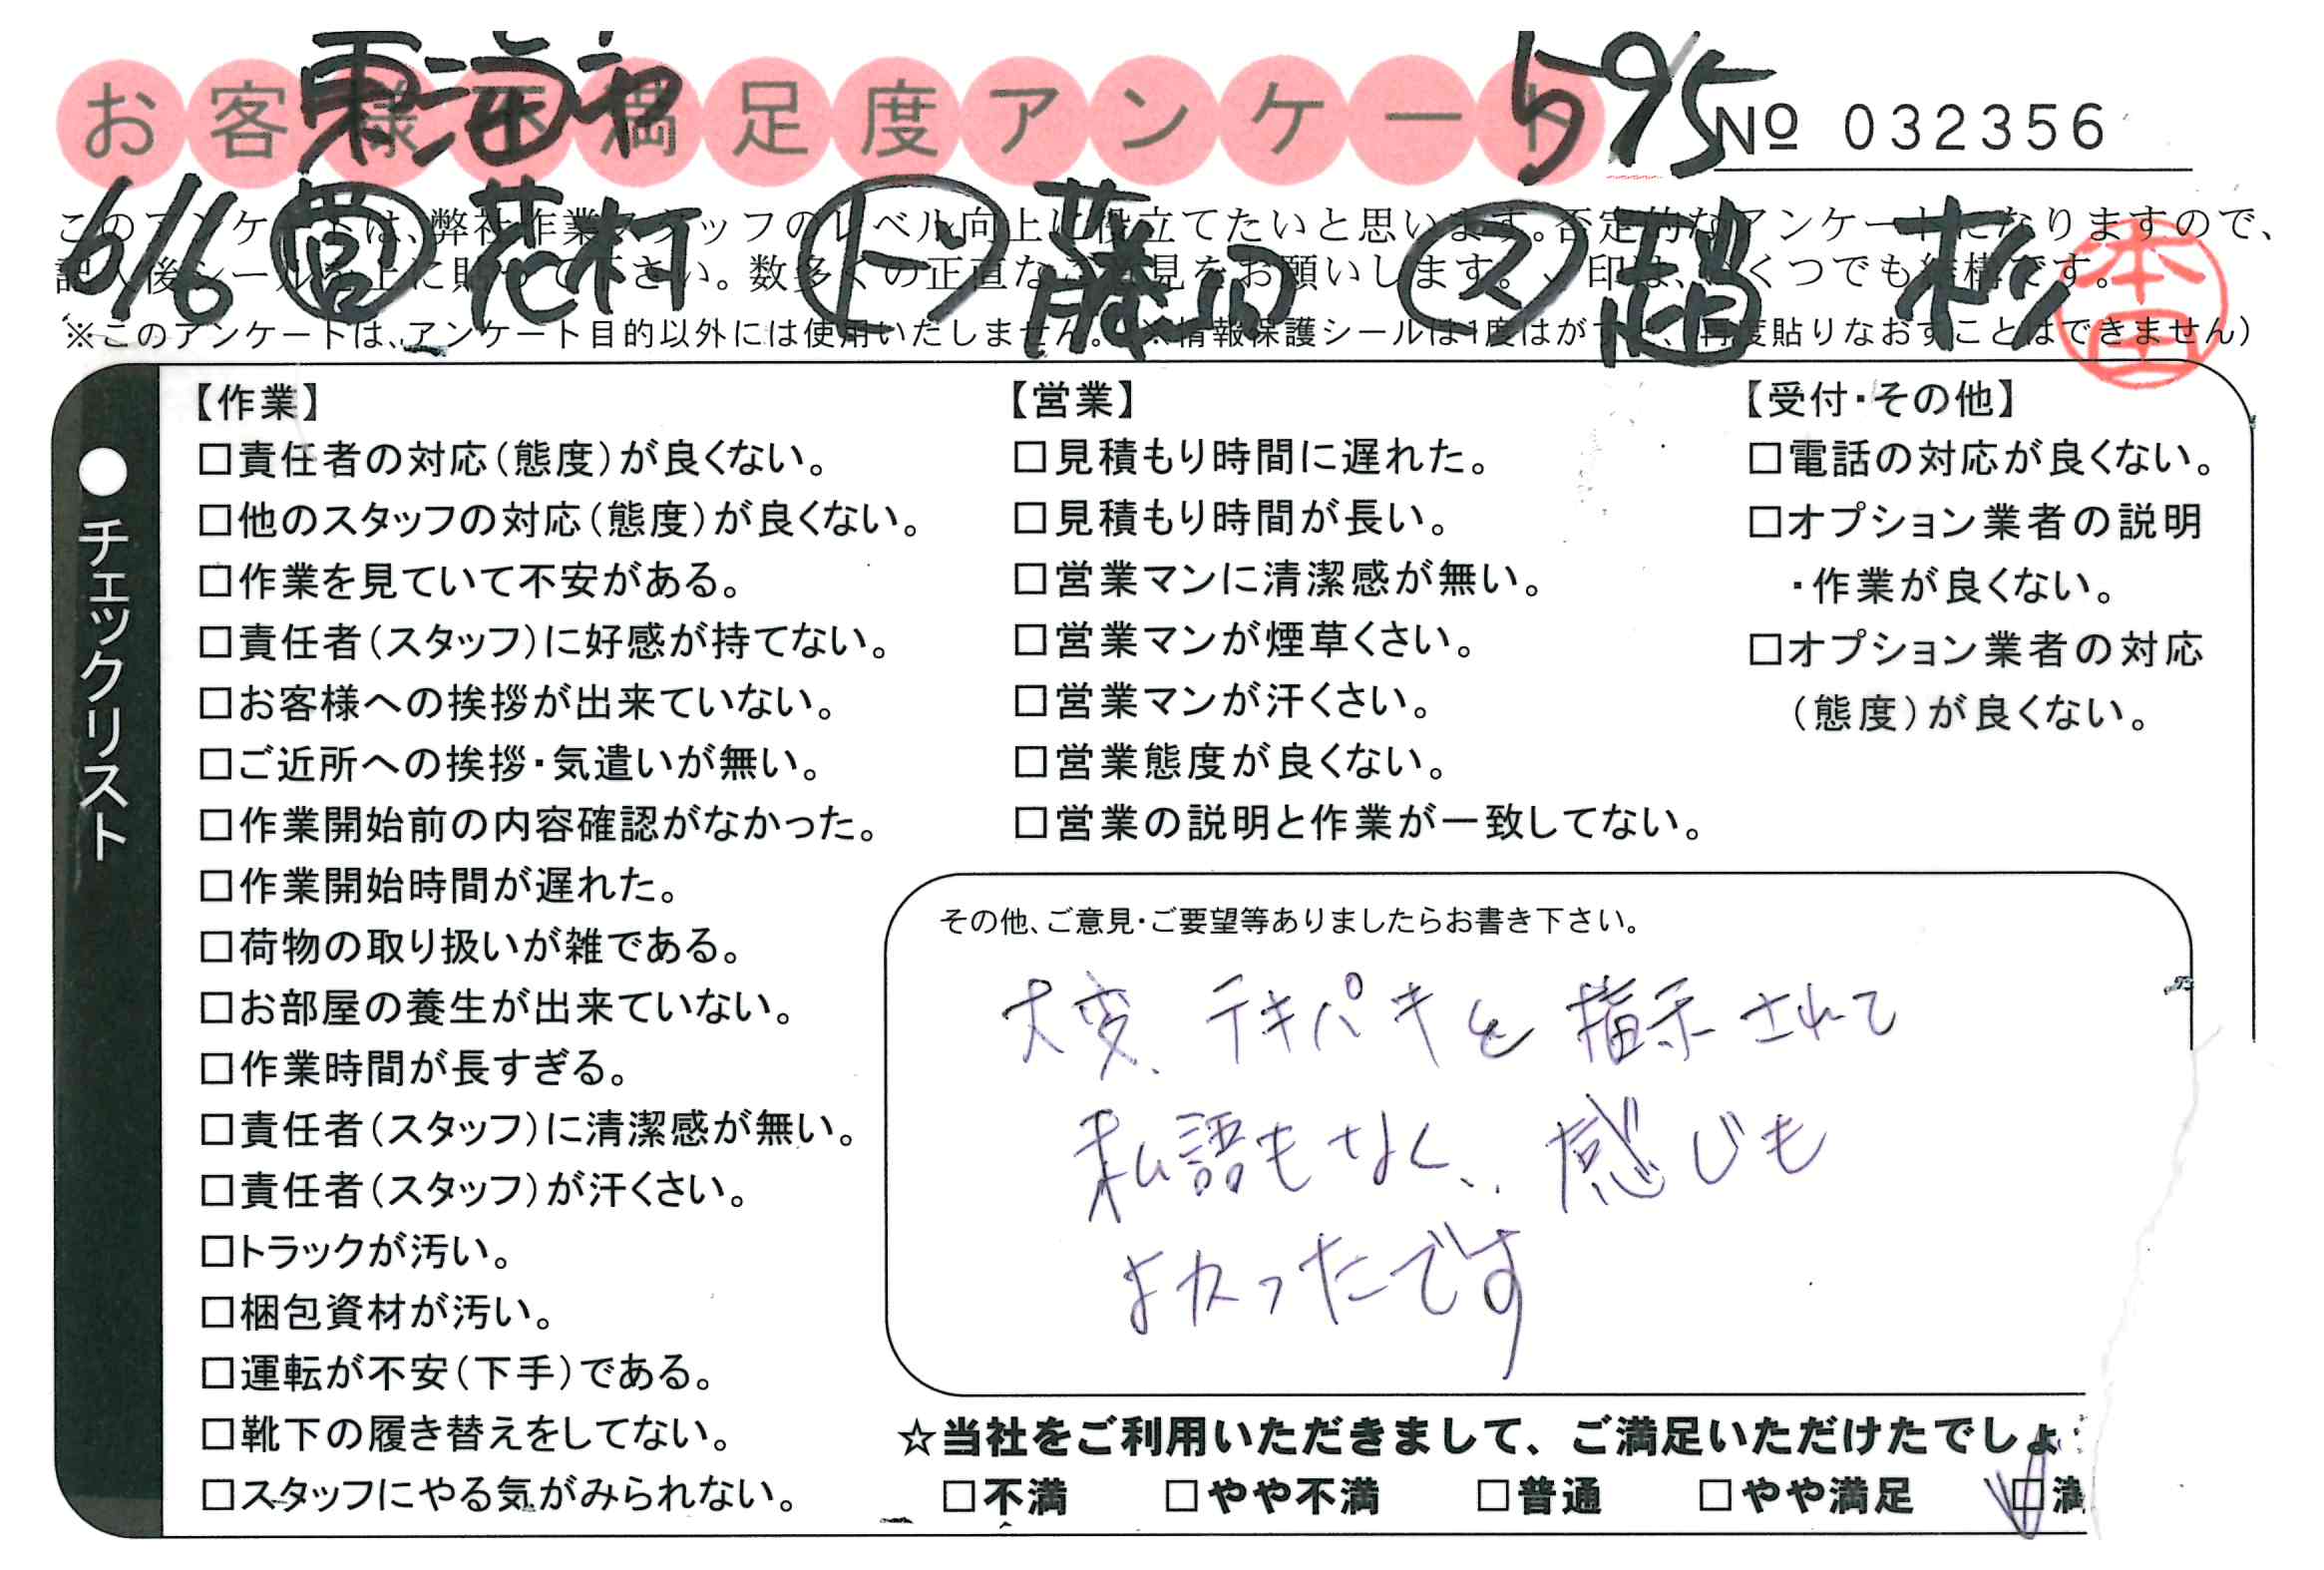 東海市
お客様不満足度アンケート
595
№ 032356
6/16 営 花村 ト 藤田 ス 趙 杉
本田
このアンケートは、弊社作業スタッフのレベル向上に役立てたいと思います。否定的なアンケートになりますので、
記入後シールを上に貼って下さい。数多くの正直なご意見をお願いします。✓印は、いくつでも結構です。
※このアンケートは、アンケート目的以外には使用いたしません。(※情報保護シールは1度はがすと、再度貼りなおすことはできません)
●チェックリスト
【作業】
□責任者の対応(態度)が良くない。
□他のスタッフの対応(態度)が良くない。
□作業を見ていて不安がある。
□責任者(スタッフ)に好感が持てない。
□お客様への挨拶が出来ていない。
□ご近所への挨拶・気遣いが無い。
□作業開始前の内容確認がなかった。
□作業開始時間が遅れた。
□荷物の取り扱いが雑である。
□お部屋の養生が出来ていない。
□作業時間が長すぎる。
□責任者(スタッフ)に清潔感が無い。
□責任者(スタッフ)が汗くさい。
□トラックが汚い。
□梱包資材が汚い。
□運転が不安(下手)である。
□靴下の履き替えをしてない。
□スタッフにやる気がみられない。
【営業】
□見積もり時間に遅れた。
□見積もり時間が長い。
□営業マンに清潔感が無い。
□営業マンが煙草くさい。
□営業マンが汗くさい。
□営業態度が良くない。
□営業の説明と作業が一致してない。
【受付・その他】
□電話の対応が良くない。
□オプション業者の説明
・作業が良くない。
□オプション業者の対応
(態度)が良くない。
その他、ご意見・ご要望等ありましたらお書き下さい。
大変、テキパキと指示されて
私語もなく、感じも
よかったです
☆当社をご利用いただきまして、ご満足いただけたでしょ
□不満 □やや不満 □普通 □やや満足 □満